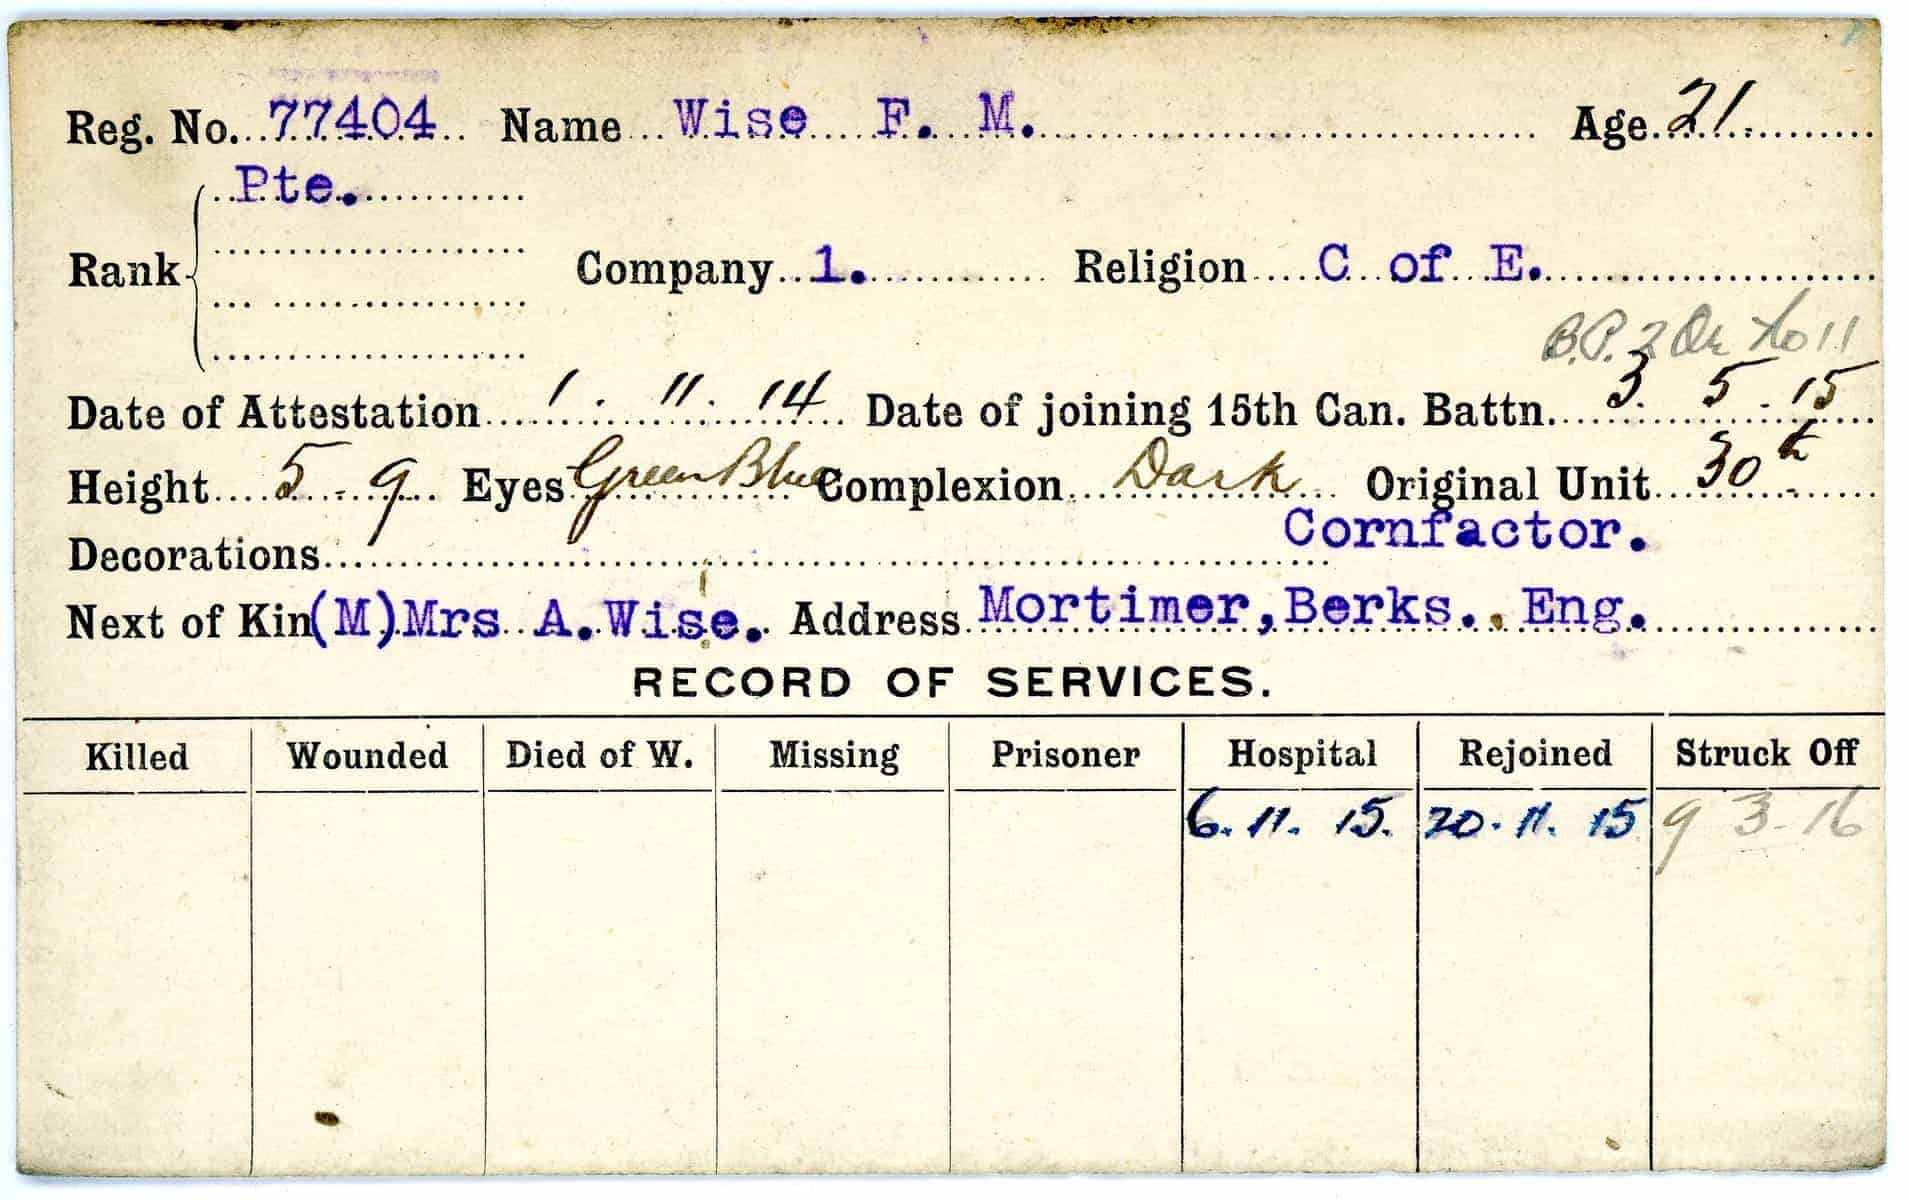 Reg. No. 77404 Name Wise F. M. Age 21.
Pte.
Rank Company 1. Religion C of E.
B.P. 2 No 11
Date of Attestation 1. 11. 14 Date of joining 15th Can. Battn. 3 5. 15
Height 5-9 Eyes Green Blue Complexion Dark Original Unit 30th
Cornfactor.
Decorations
Next of Kin (M) Mrs A. Wise. Address Mortimer, Berks. Eng.
RECORD OF SERVICES.
Killed Wounded Died of W. Missing Prisoner Hospital Rejoined Struck Off
6. 11. 15. 20. 11. 15 9 3. 16